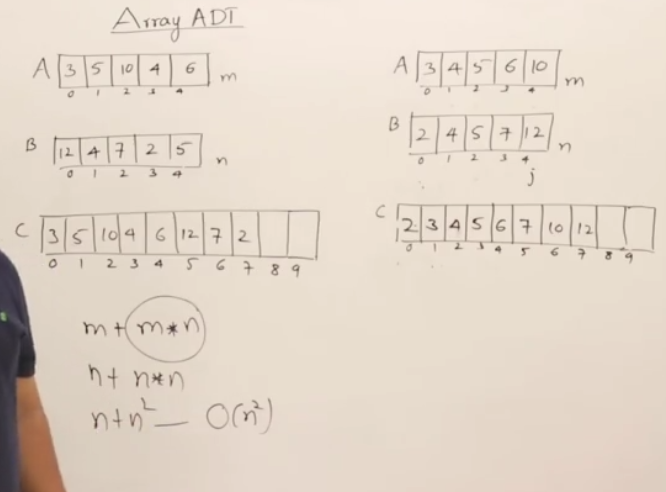 Array ADT
A 3 5 10 4 6 m
0 1 2 3 4
B 12 4 7 2 5 n
0 1 2 3 4
C 3 5 10 4 6 12 7 2
0 1 2 3 4 5 6 7 8 9
m + m*n
n + n*n
n + n² — O(n²)
A 3 4 5 6 10 m
0 1 2 3 4
B 2 4 5 7 12 n
0 1 2 3 4
j
C 2 3 4 5 6 7 10 12
0 1 2 3 4 5 6 7 8 9